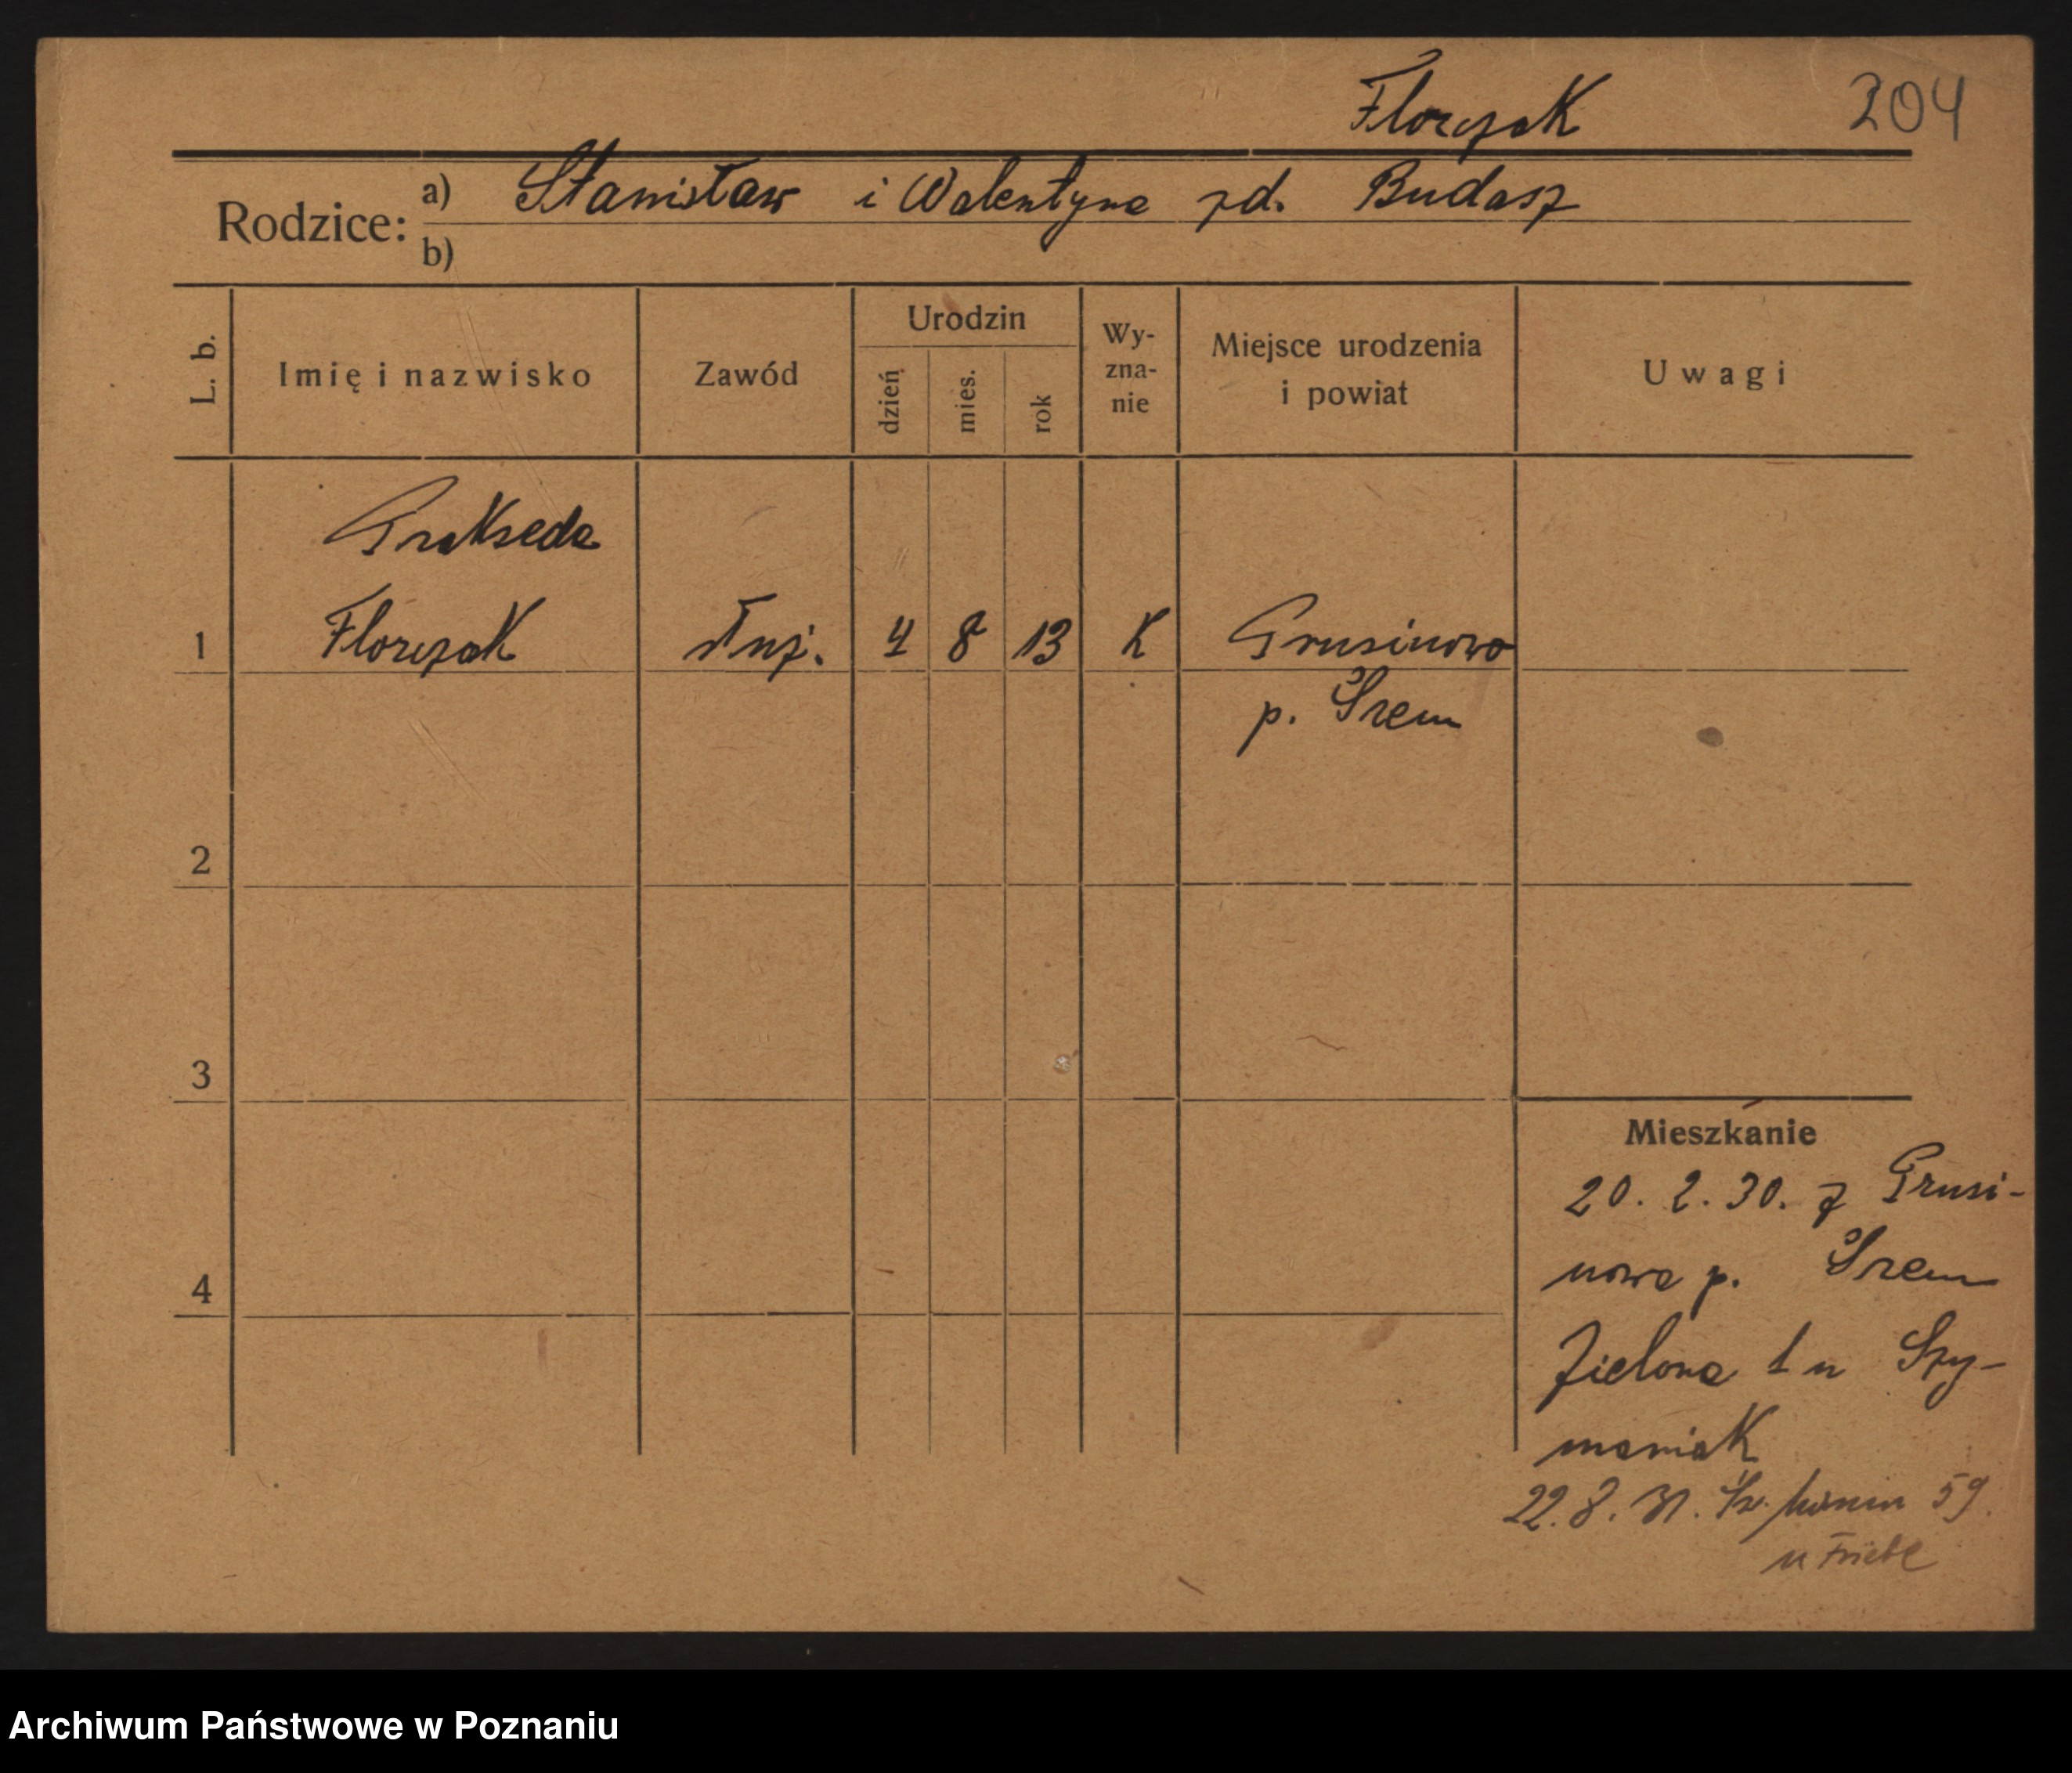 Florczak 204
Rodzice: a) Stanisław i Walentyna zd. Budasz
b)
L. b. Imię i nazwisko Zawód Urodzin dzień mies. rok Wy-
zna-
nie Miejsce urodzenia
i powiat Uwagi
Prakseda
1 Florczak służ. 4 8 13 K Grusinowo
p. Śrem
2
3
4
Mieszkanie
20. 2. 30. z Grusi-
nowa p. Śrem
Zielona 1 u Szy-
maniak
22. 8. 31. 59
u
Archiwum Państwowe w Poznaniu